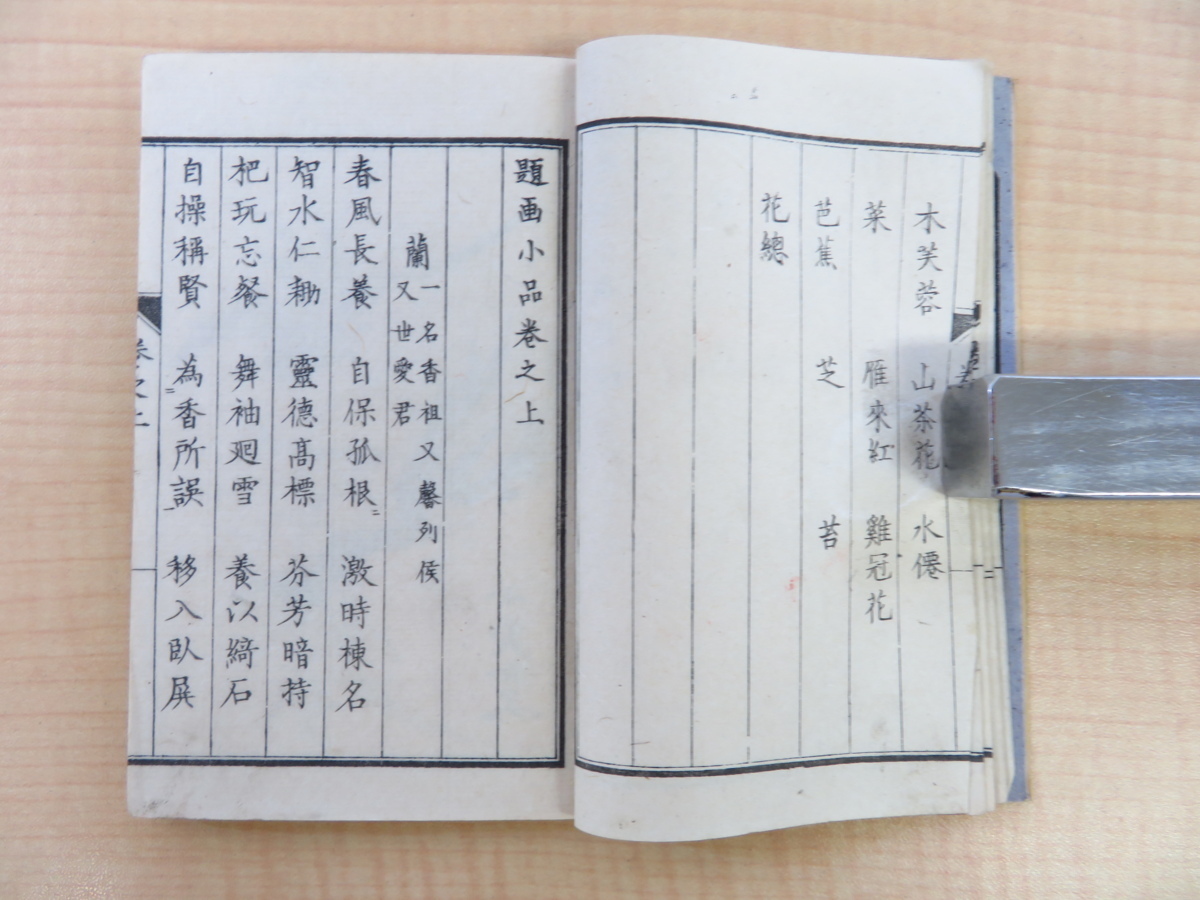 木芙蓉 山茶花 水僊
菜 雁來紅 雞冠花
芭蕉 芝 苔
花總
題画小品卷之上
蘭 一名香祖又馨列侯
又世愛君
春風長養 自保孤根 激時棟名
智水仁耡 靈德髙標 芬芳暗持
杷玩忘餐 舞袖廻雪 養以綺石
自操稱賢 為香所誤 移入臥屏
卷之上